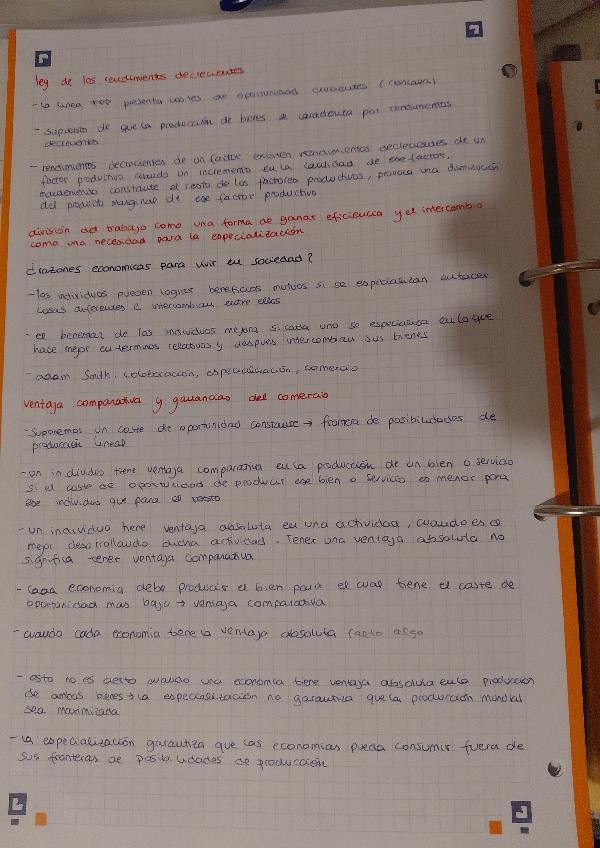 ley de los rendimientos decrecientes
- la linea FPP presenta costes de oportunidad crecientes (concava)
- supuesto de que la producción de bienes se caracteriza por rendimientos
decreciente
- rendimientos decrecientes de un factor existen rendimientos decrecientes de un
factor productivo cuando un incremento en la cantidad de ese factor,
manteniendo constante el resto de los factores productivos, provoca una disminución
del producto marginal de ese factor productivo
división del trabajo como una forma de ganar eficiencia y el intercambio
como una necesidad para la especialización
¿razones economicas para vivir en sociedad?
- los individuos pueden lograr beneficios mutuos si se especializan en hacer
cosas diferentes e intercambian entre ellos
- el bienestar de los individuos mejora si cada uno se especializa en lo que
hace mejor en terminos relativos y despues intercambian sus bienes
- adam Smith: colaboración, especialización, comercio
ventaja comparativa y ganancias del comercio
- Suponemos un coste de oportunidad constante → frontera de posibilidades de
producción lineal
- un individuo tiene ventaja comparativa en la producción de un bien o servicio
si el coste de oportunidad de producir ese bien o servicio es menor para
ese individuo que para el resto
- un individuo tiene ventaja absoluta en una actividad, cuando es el
mejor desarrollando dicha actividad. Tener una ventaja absoluta no
significa tener ventaja comparativa
- Cada economia debe producir el bien para el cual tiene el coste de
oportunidad mas bajo → ventaja comparativa
- cuando cada economia tiene la ventaja absoluta
- esto no es cierto cuando una economia tiene ventaja absoluta en la produccion
de ambos bienes → la especialización no garantiza que la producción mundial
sea maximizada
- la especialización garantiza que las economias pueda consumir fuera de
sus fronteras de posibilidades de producción